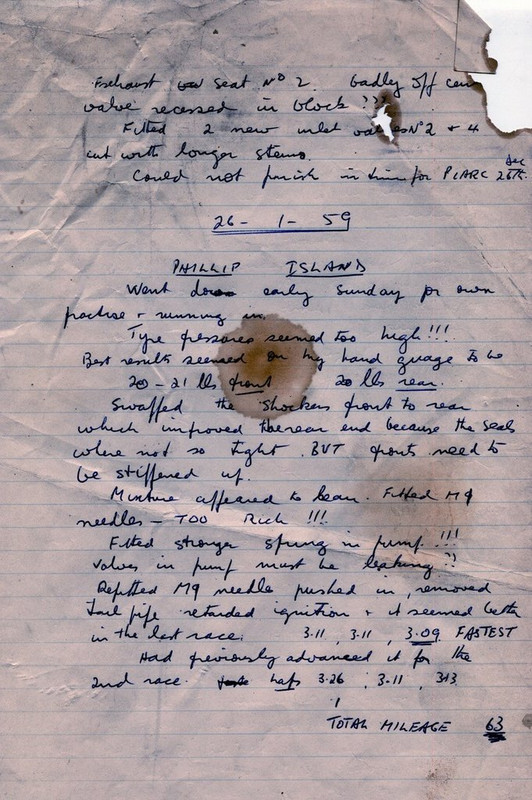 Exhaust seat No 2. badly off cen
valve recessed in block ???
Fitted 2 new inlet valves No 2 + 4
cut with longer stems.
Could not finish in time for PIARC Dec 26th.
26 - 1 - 59
PHILLIP ISLAND
Went down early Sunday for own
practise + running in.
Tyre pressures seemed too high !!!
Best results seemed on my hand guage to be
20 - 21 lbs front 20 lbs rear.
Swapped the shockers front to rear
which improved the rear end because the seals
where not so tight. BUT fronts need to
be stiffened up.
Mixture appeared to lean. Fitted M9
needles — TOO Rich !!!
Fitted stronger spring in pump !!!
valves in pump must be leaking ??
Refitted M9 needle pushed in, removed
tail pipe retarded ignition + it seemed better
in the last race. 3.11, 3.11, 3.09 FASTEST
Had previously advanced it for the
2nd race. laps 3.26, 3.11, 313
TOTAL MILEAGE 63